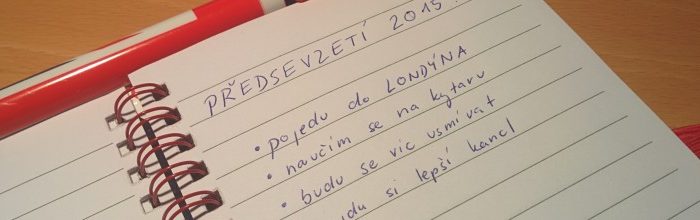 PŘEDSEVZETÍ 2015
• pojedu do LONDÝNA
• naučím se na kytaru
• budu se víc usmívat
si lepší kancl